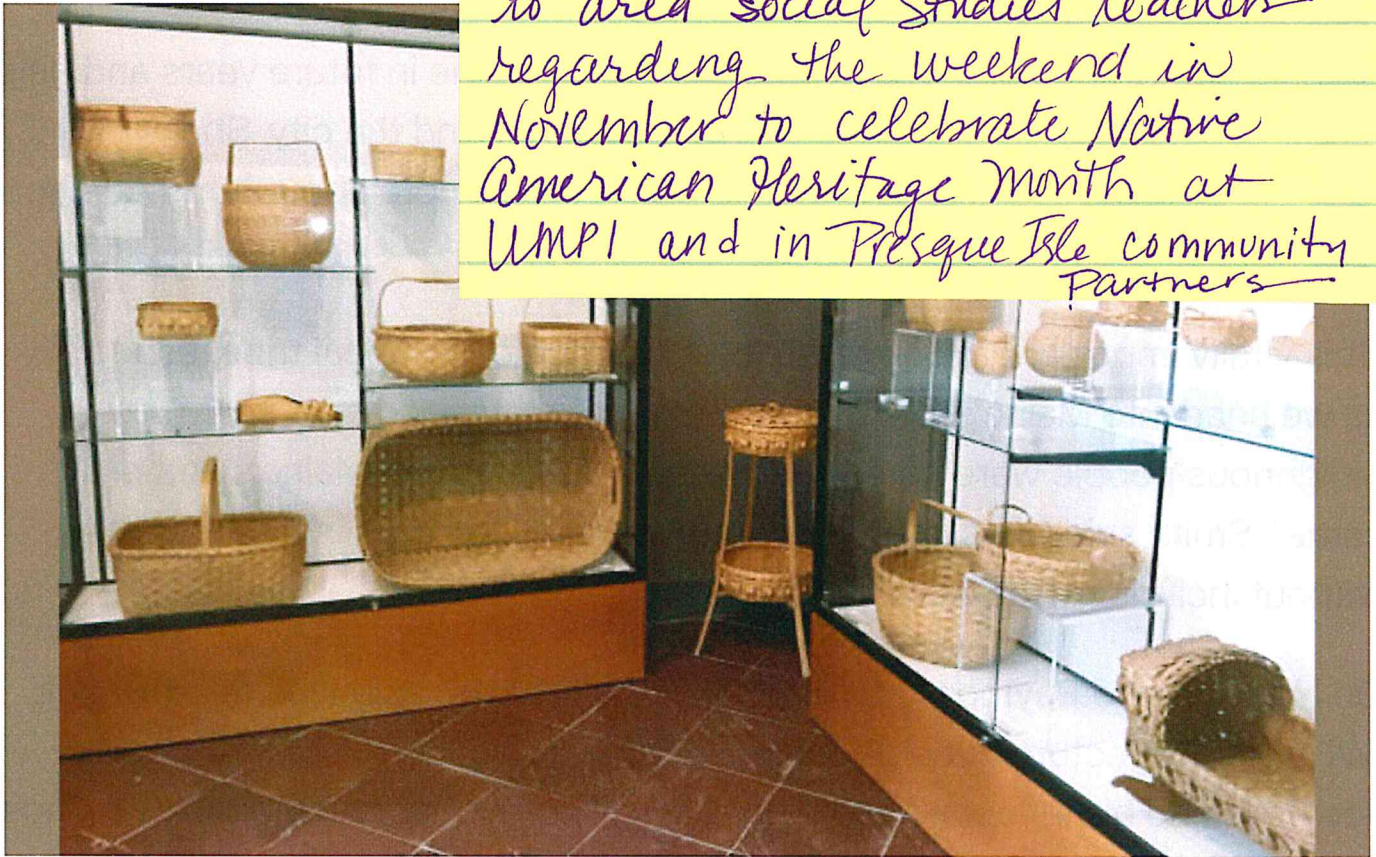 to area social studies teachers
regarding the weekend in
November to celebrate Native
American Heritage Month at
UMPI and in Presque Isle community
Partners